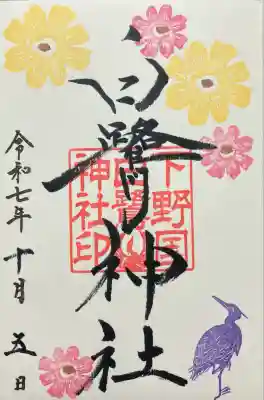 白鷺神社
下野国
白鷺
神社印
令和七年十月五日